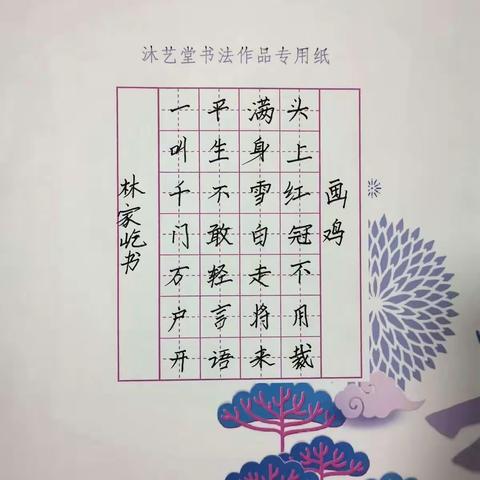 沐艺堂书法作品专用纸
画鸡
头上红冠不用裁
满身雪白走将来
平生不敢轻言语
一叫千门万户开
林家屹书